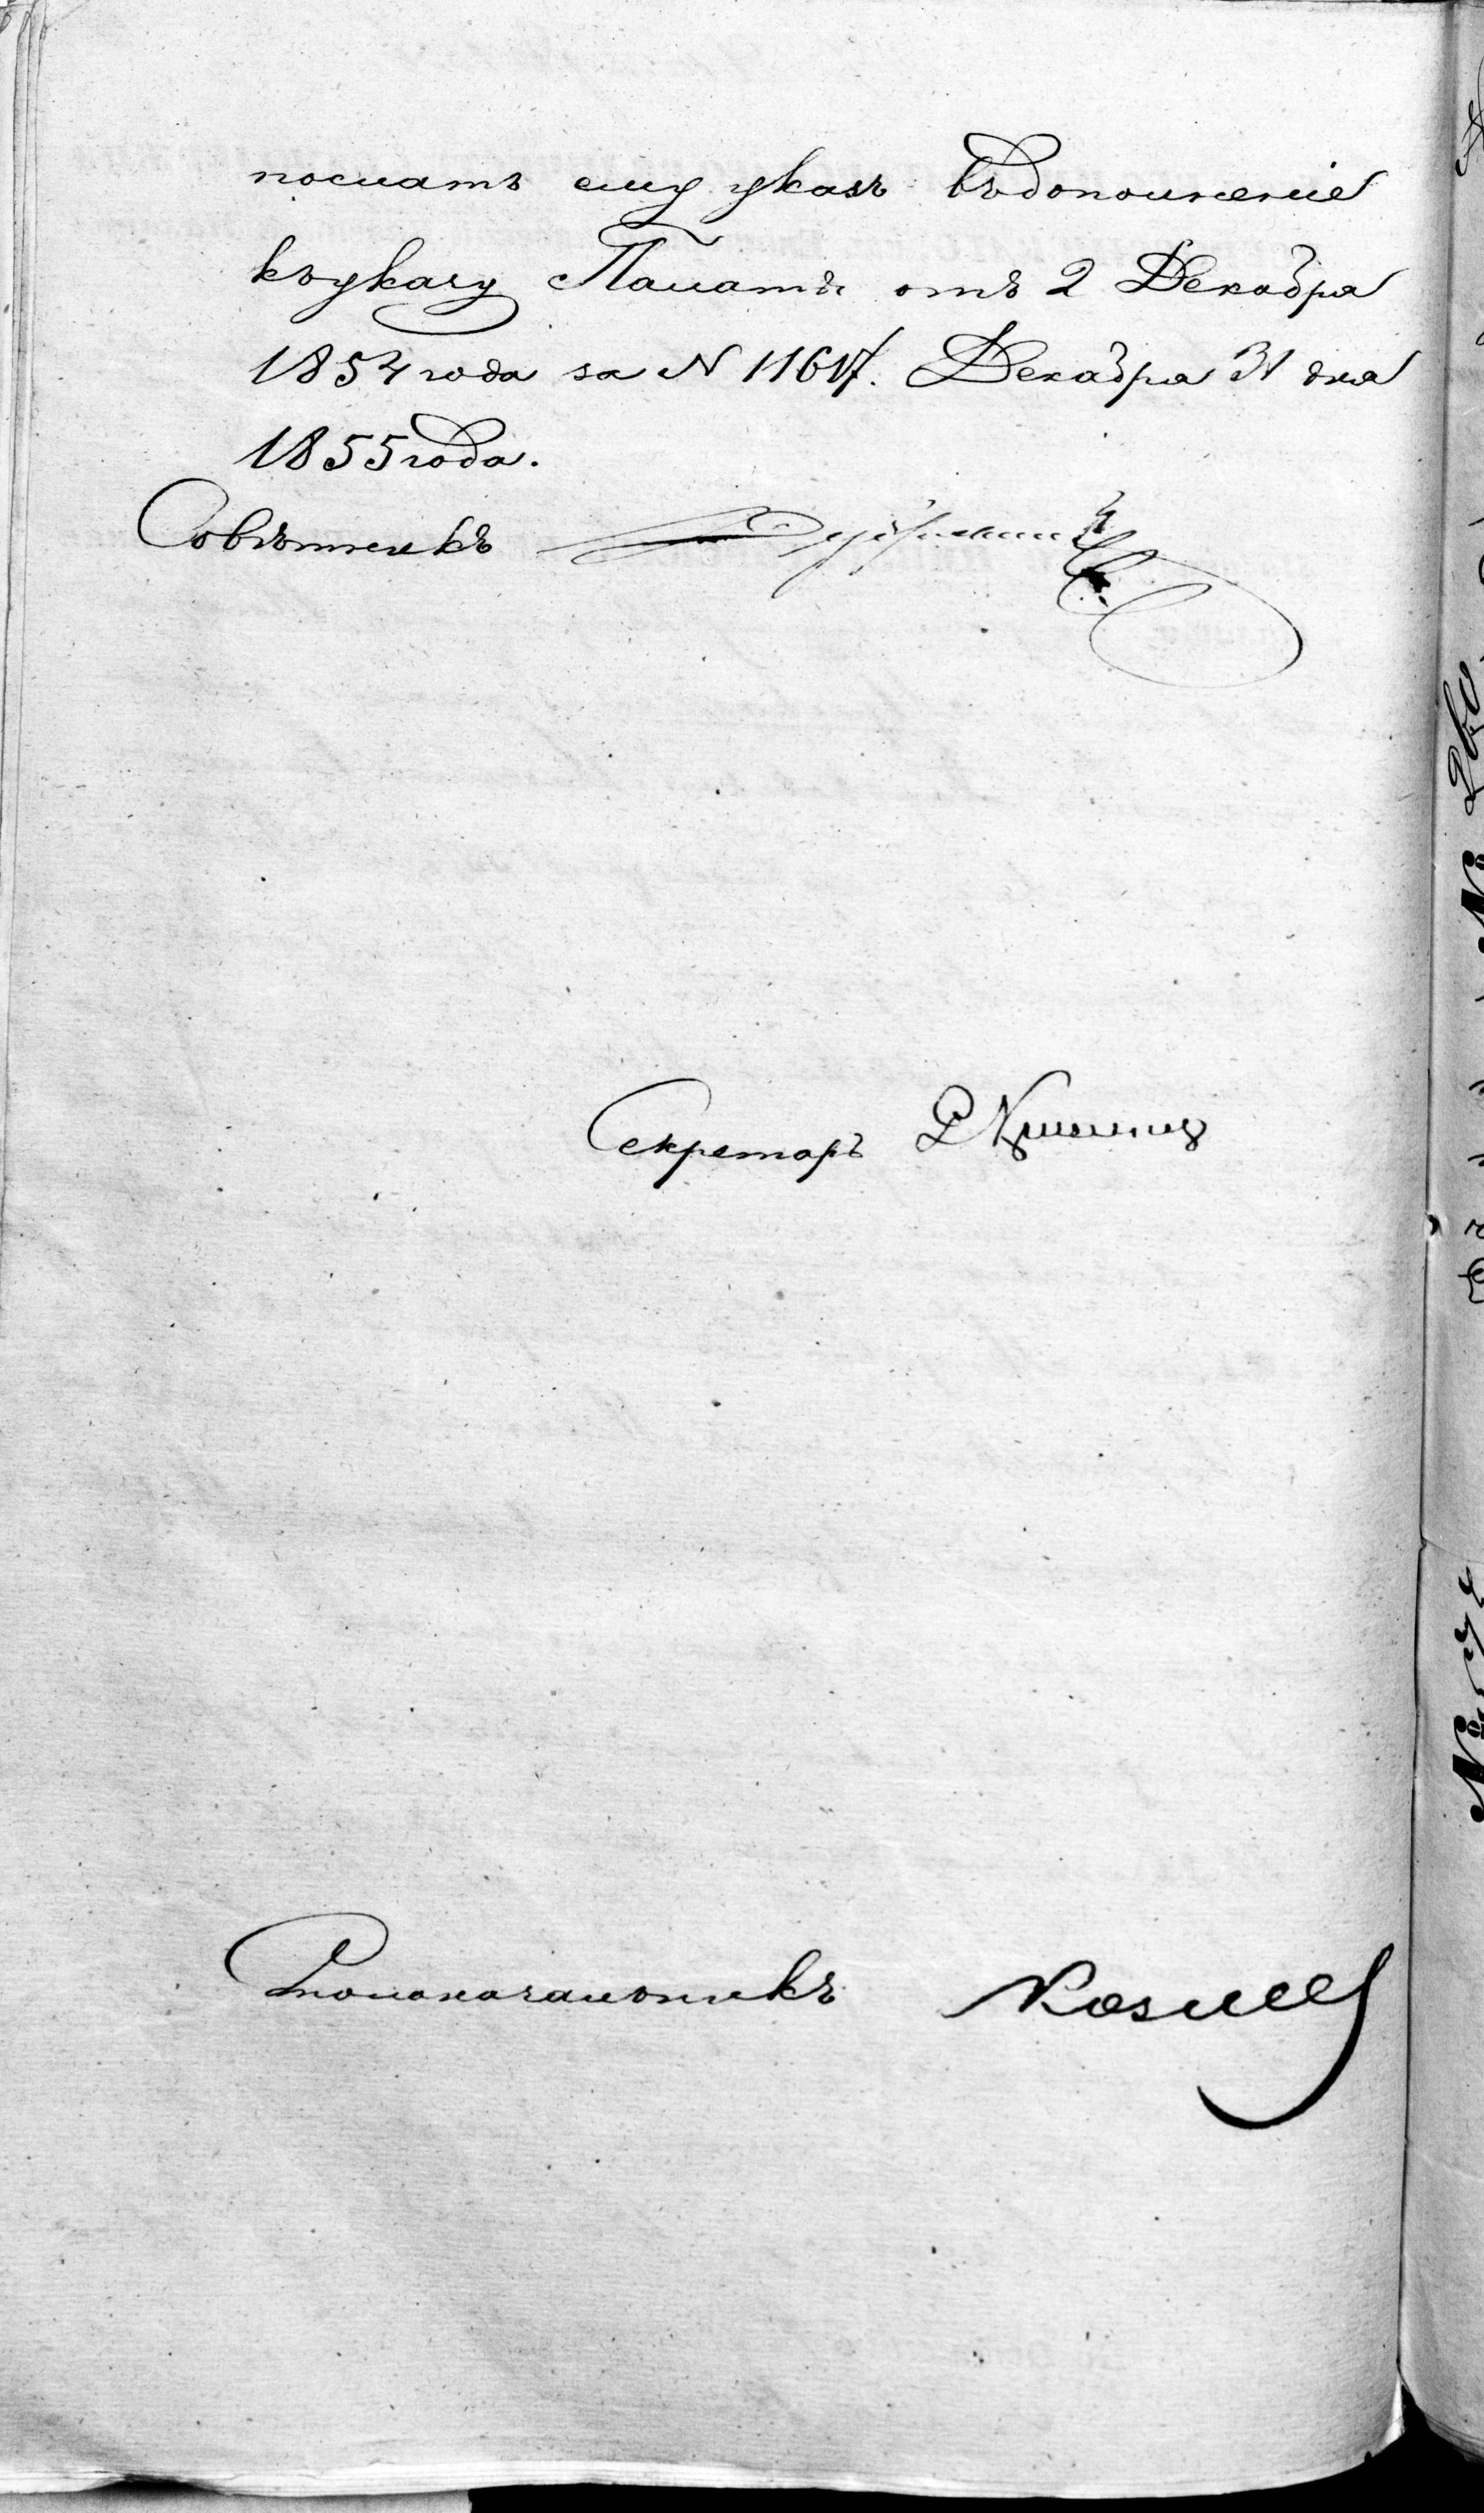 послать ему указъ въдополненіе
къуказу Палаты отъ 2 Декабря
1854 года за N 11617. Декабря 31 дня
1855 года.
Совѣтникъ
Секретарь
Столоначальникъ